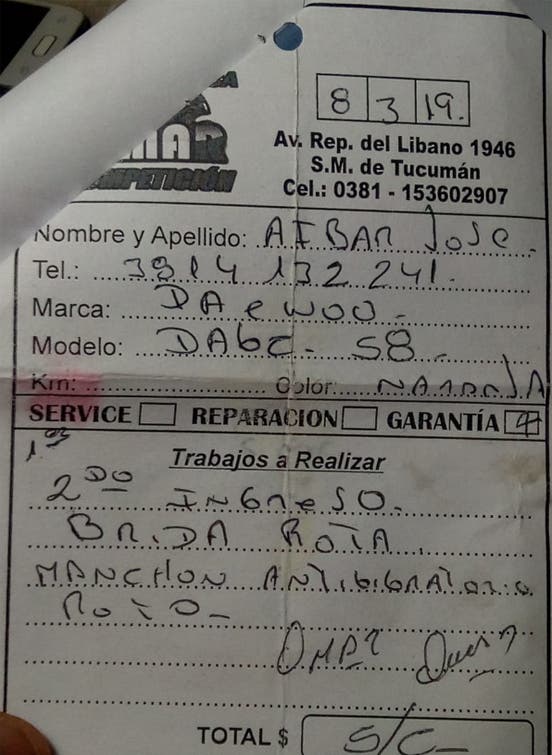 8 3 19.
MAR
MPETICIÓN
Av. Rep. del Libano 1946
S.M. de Tucumán
Cel.: 0381 - 153602907
Nombre y Apellido: AIBAR JOSE.
Tel.: 3814 132 241.
Marca: DAewoo.
Modelo: DABC- 58
Km: Color: NARANJA
SERVICE REPARACION GARANTÍA
1er
Trabajos a Realizar
2DO INGReSO.
BRIDA ROTA.
MANCHON ANTIBIBRATORIO
ROTO-
TOTAL $ S/C